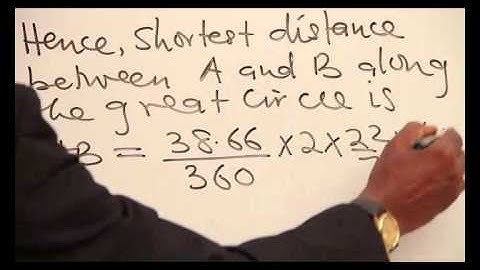 Hence, Shortest distance
between A and B along
the great circle is
B = 38.66/360 × 2 × 22